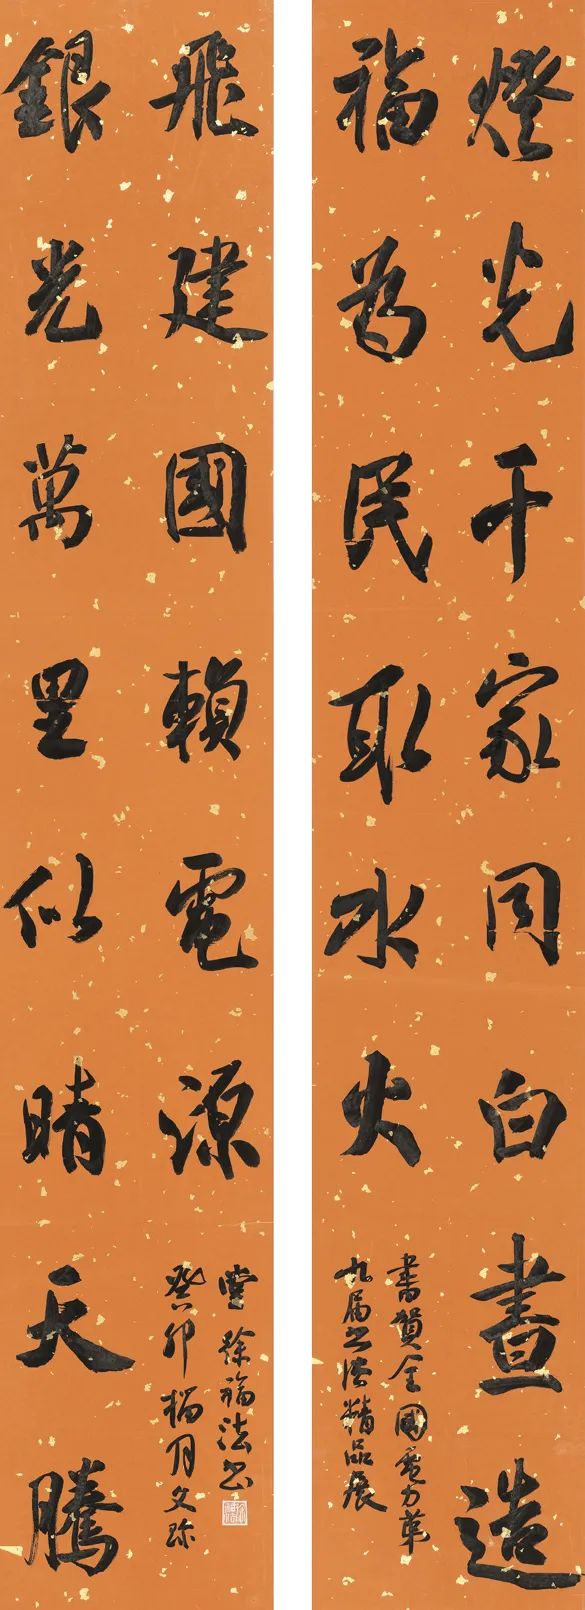 燈光千家同白晝造
福為民取水火
書賀全國電力第
九屆書法精品展
銀光萬里似晴天騰
飛建國賴電源
癸卯榴月文珎
堂徐福法書